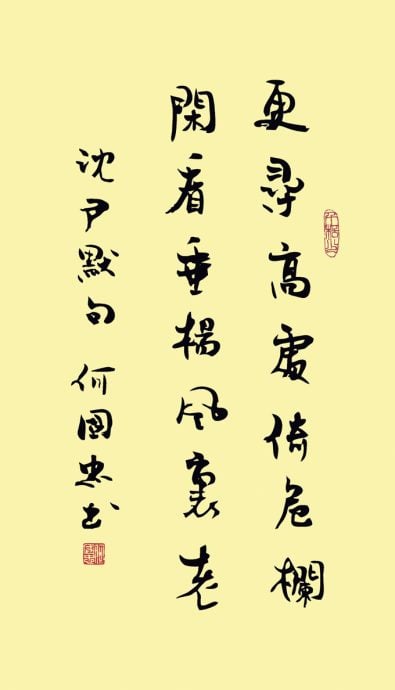 更尋高處倚危欄
閑看垂楊風裏老
沈尹默句 何國忠書